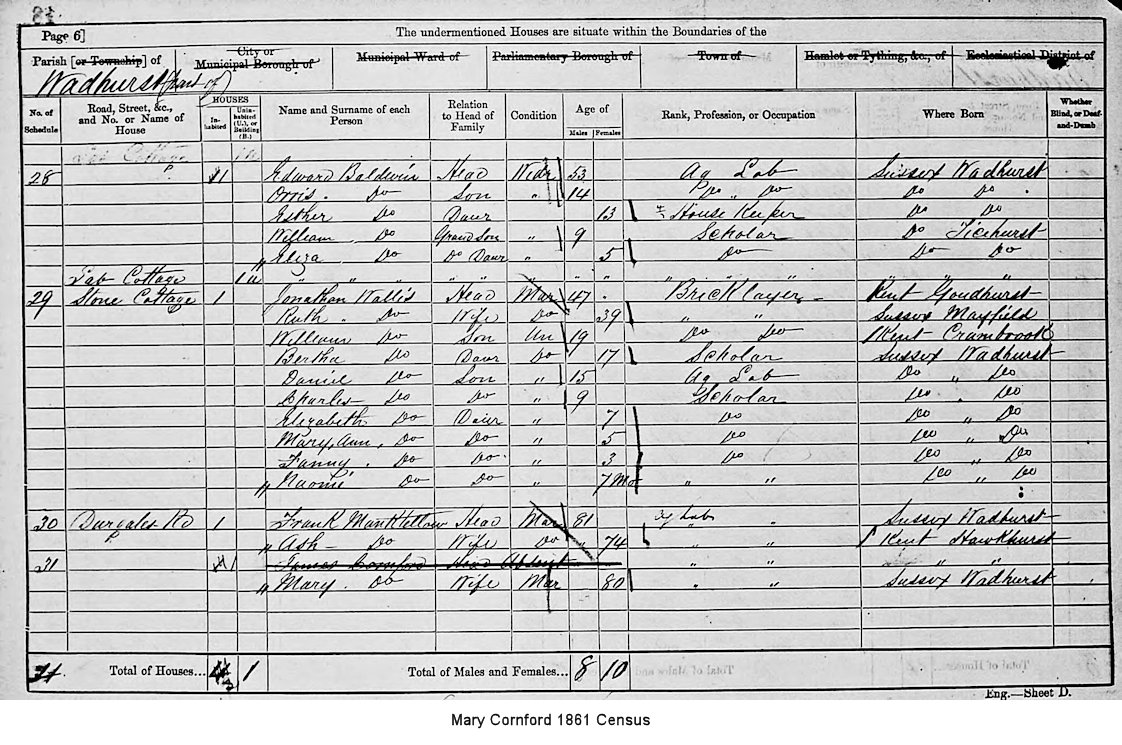 Page 6]
The undermentioned Houses are situate within the Boundaries of the
Parish [or Township] of
City or Municipal Borough of
Municipal Ward of
Parliamentary Borough of
Town of
Hamlet or Tything, &c., of
Ecclesiastical District of
Wadhurst (Part of)
No. of Schedule
Road, Street, &c., and No. or Name of House
HOUSES
Inhabited
Uninhabited (U.), or Building (B.)
Name and Surname of each Person
Relation to Head of Family
Condition
Age of
Males
Females
Rank, Profession, or Occupation
Where Born
Whether Blind, or Deaf-and-Dumb
Cottage
28 1 Edward Baldwin Head Widr 53 Ag Lab Sussex Wadhurst
Orris. Do Son " 14 Do Do Do Do
Esther Do Daur 13 House Keeper Do Do
William Do Grand Son " 9 Scholar Do Ticehurst
" Eliza Do Do Daur " 5 Do Do Do
Cottage 1u " " " " " " " " " "
29 Stone Cottage 1 Jonathan Wallis Head Mar 47 Bricklayer Kent Goudhurst
Ruth. Do Wife Do 39 " " Sussex Mayfield
William Do Son Un 19 Do Do Kent Crambrook
Bertha Do Daur Do 17 Scholar Sussex Wadhurst
Daniel Do Son " 15 Ag Lab Do " Do
Charles Do Do " 9 Scholar Do . Do
Elizabeth Do Daur " 7 Do Do " Do
Mary Ann. Do Do " 5 Do Do " Do
Fanny. Do Do " 3 Do Do " Do
" Naomi Do Do " 7 Mo " " Do " Do
30 Durgates Rd 1 Frank Manktellow Head Mar 81 Ag Lab " Sussex Wadhurst
" Ash Do Wife Do 74 " " Kent Hawkhurst
31 1 James Cornford Head Absent " " " "
" Mary. Do Wife Mar 80 " " Sussex Wadhurst
Total of Houses... 3 1 Total of Males and Females... 8 10
Eng.—Sheet D.
Mary Cornford 1861 Census